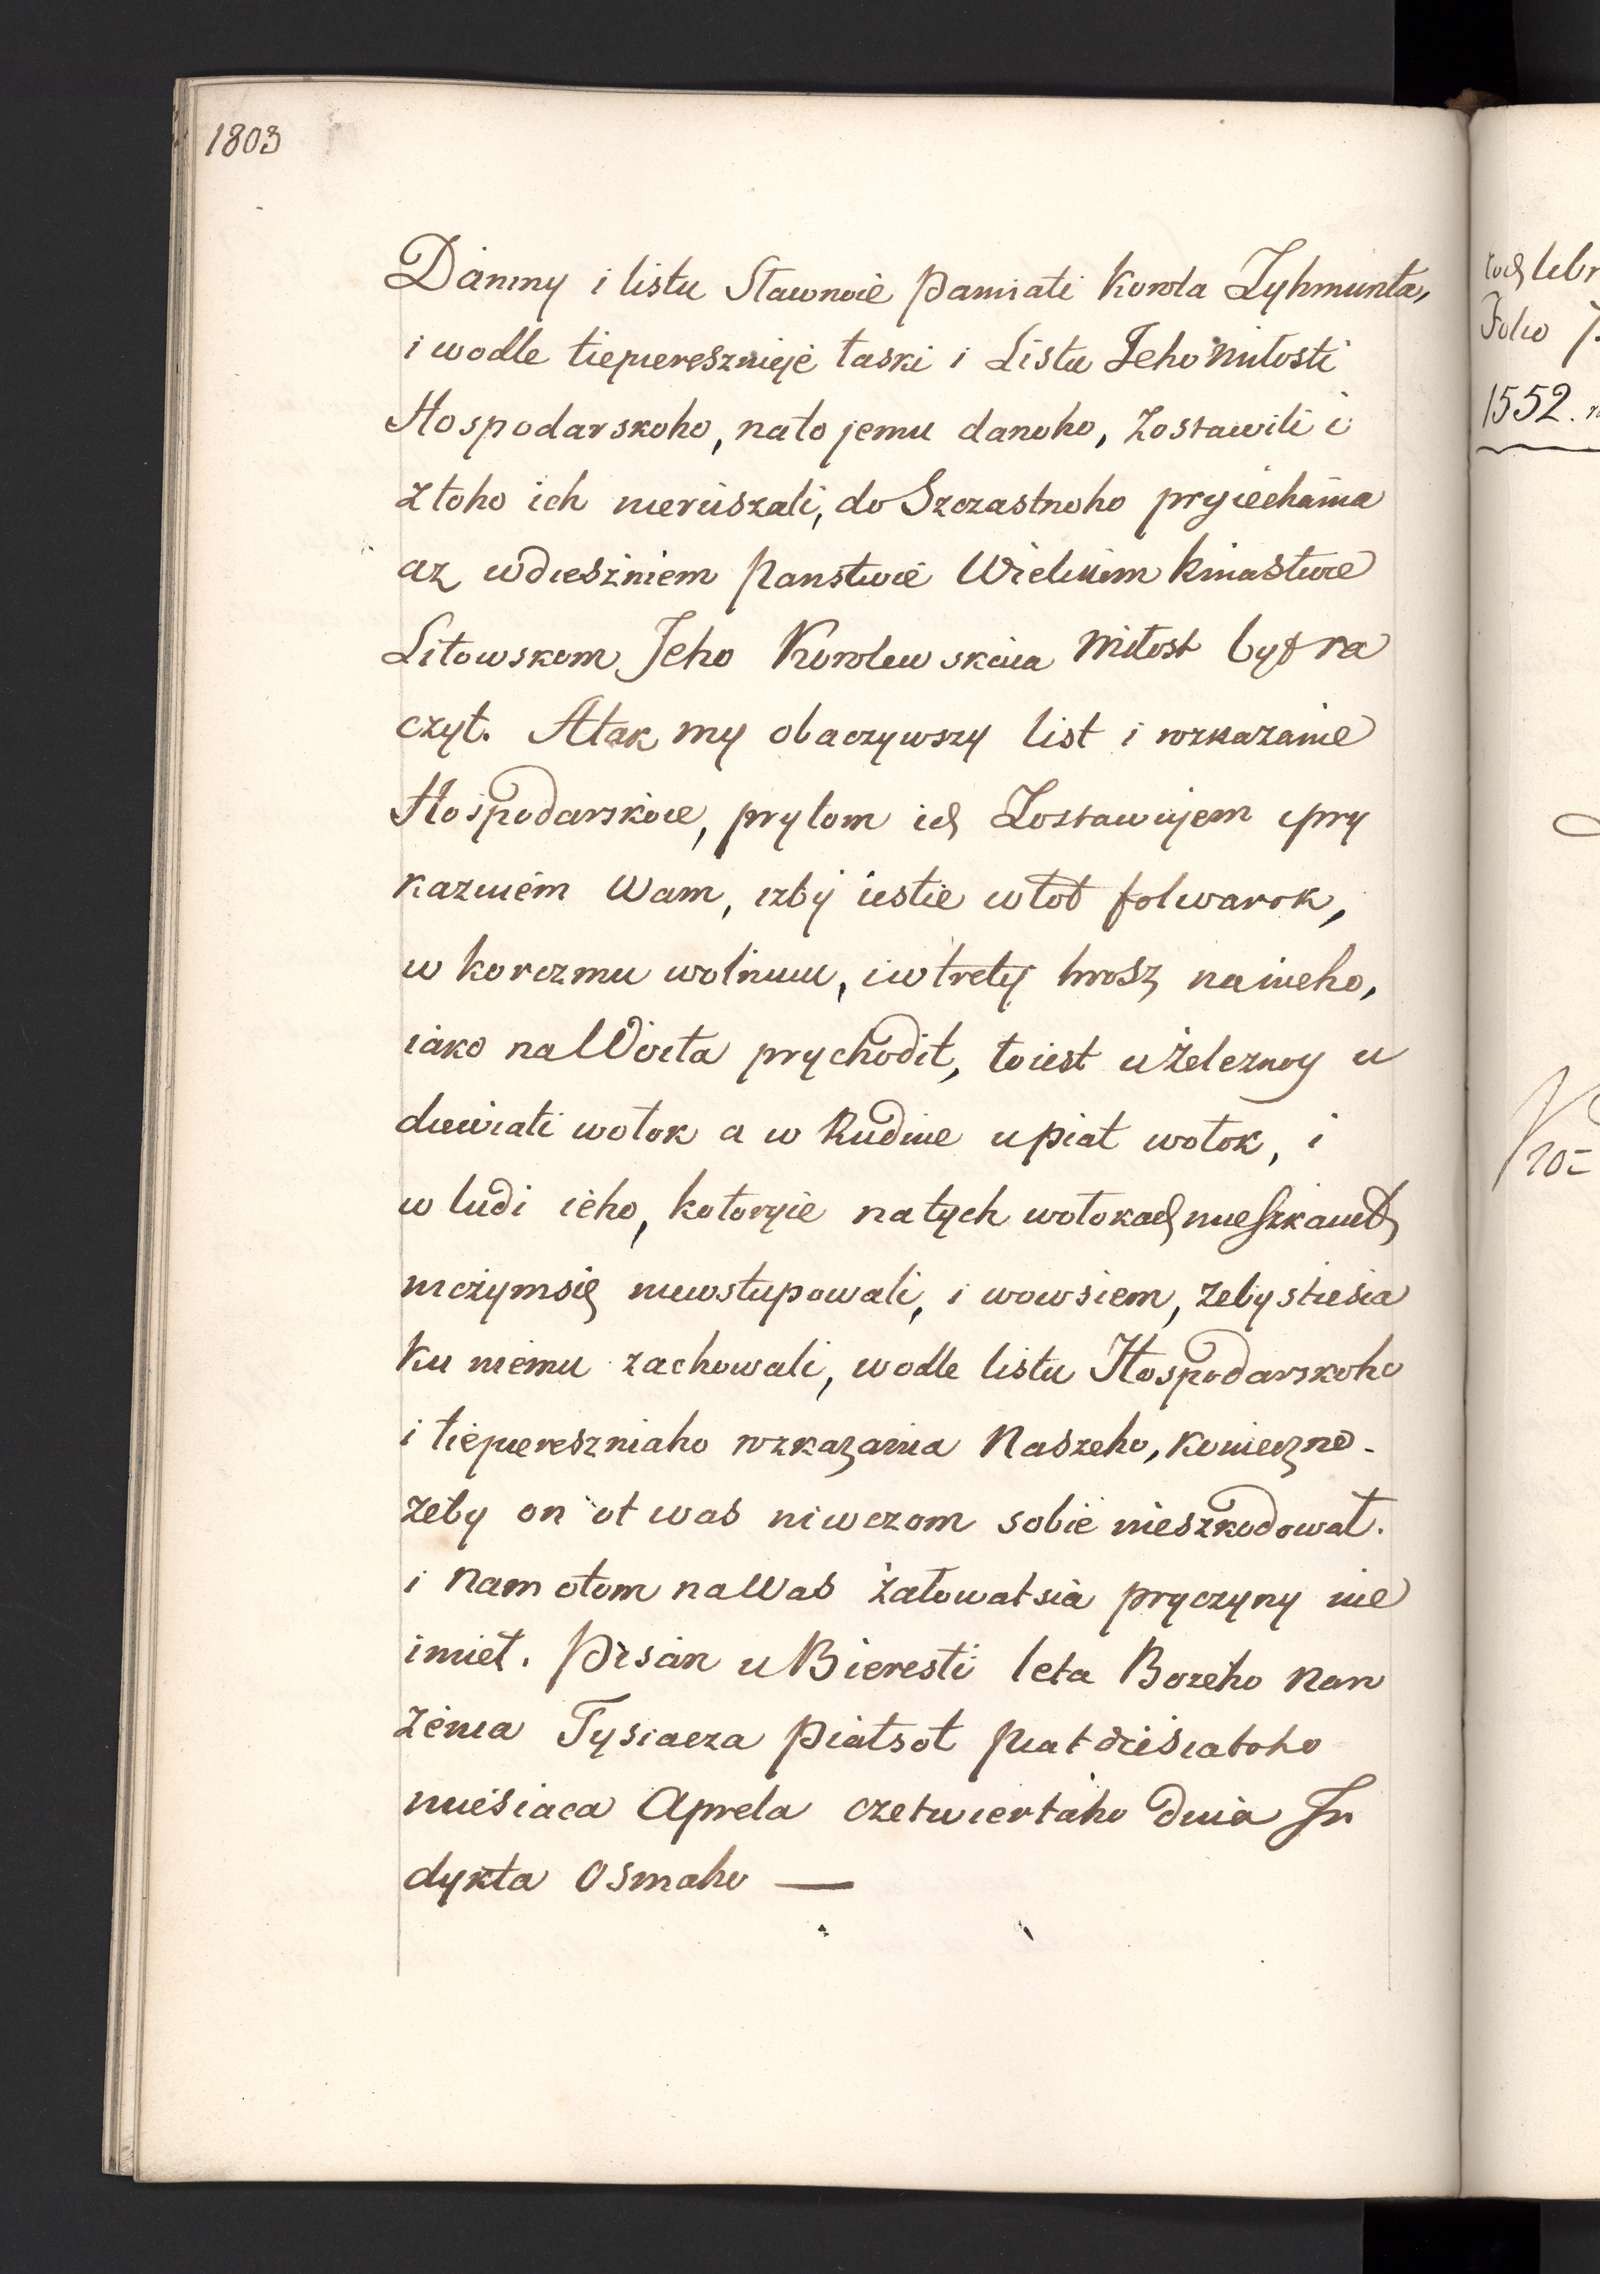 1803
Daniny i listu Sławnoie Pamiati Korola Zyhmunta,
i wodle tiepiereszniejė łaski i Listu Jeho Miłosti
Hospodarskoho, nato jemu danoho, Zostawili i
ztoho ich nieruszali, do Szczastnoho pryiechania
az wdieszniem Panstwie Wielikim Kniastwe
Litowskom Jeho Korolewskaia Miłost byt ra
czył. Atak my obaczywszy list i rozkazanie
Hospodarskoie, prytom ich Zostawujem i pry
kazuiem Wam, izby iestie wtot folwarok,
w korczmu wolnuiu, i w trety hrosz na nieho,
iako na Woita prychodit, toiest u Zeleznoy u
dewiati wołok a w Rudnie u piat wołok, i
w ludi ieho, kotoryie na tych wołokach mieszkaiut,
niczymsię niewstupowali, i wowsiem, zebystiesia
ku niemu zachowali, wodle listu Hospodarskoho
i tiepiereszniaho rozkazania Naszeho, koniecznò.
zeby on ot was niwczom sobie nieszkodował.
i Nam otom na Was żałowatsia pryczyny nie
imieł. Pisan u Bieresti leta Bozeho Naro
żenia Tysiacza Piatsot Piatdiesiatoho
miesiaca Aprela czetwiertaho dnia In
dykta Osmaho —
Folio 7.
1552.